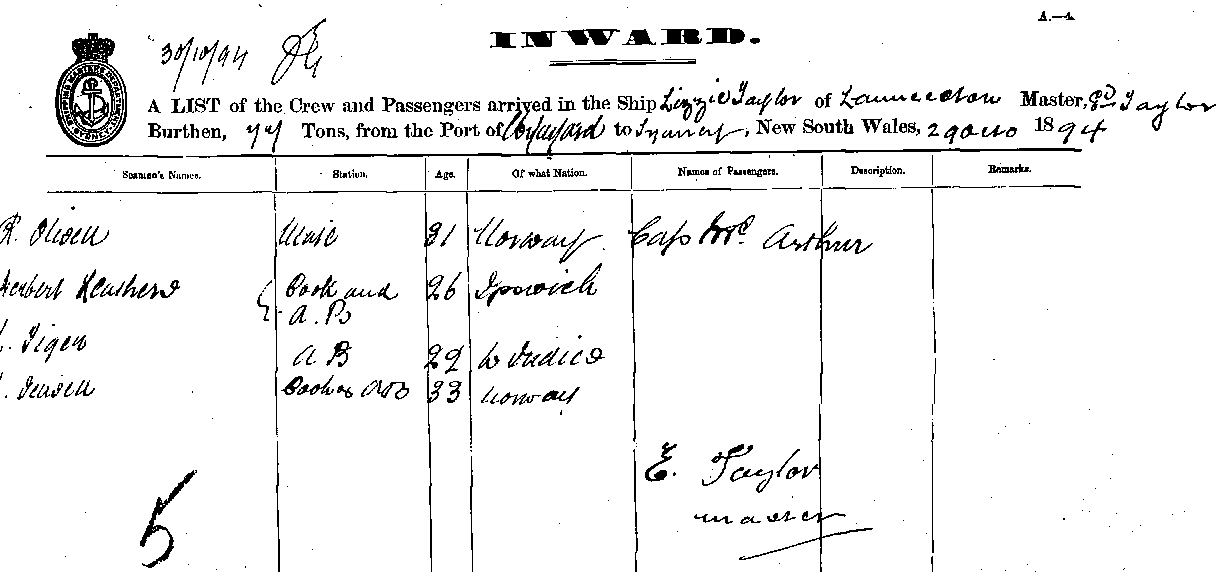 A.—4.
30/10/94
INWARD.
A LIST of the Crew and Passengers arrived in the Ship Lizzie Taylor of Launceston Master, Ed Taylor
Burthen, 77 Tons, from the Port of to Sydney, New South Wales, 29 Octo 1894
Seamen's Names. Station. Age. Of what Nation. Names of Passengers. Description. Remarks.
R. Olsen Mate 31 Norway Cap Mc Arthur
Herbert Cook and 26 Ipswich
A.B
A B 29 W Indies
Jensen Cook & AB 33 Norway
E. Taylor
master
5